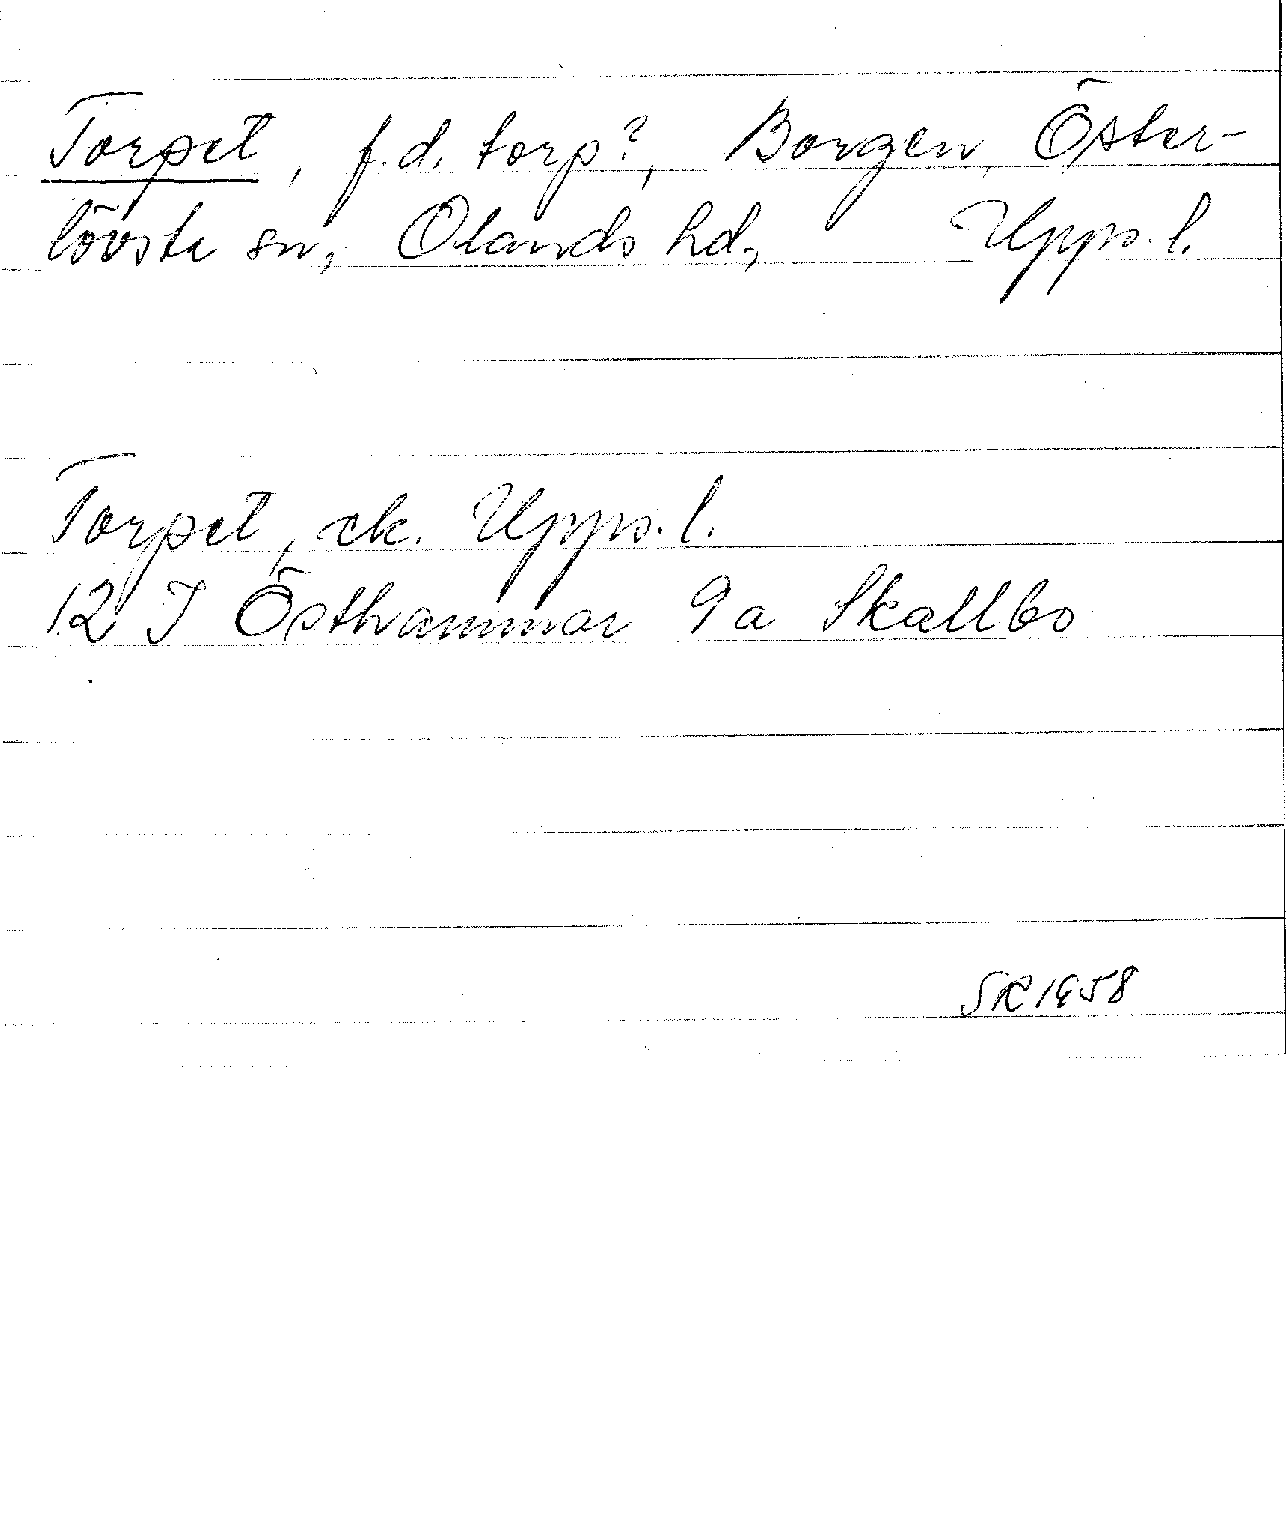 Torpet, f.d. torp?, Borgen, Öster-
lövsta sn, Olands hd, Upps. l.
Torpet, ek. Upps. l.
12 I Östhammar 9a Skallbo
SR 1958